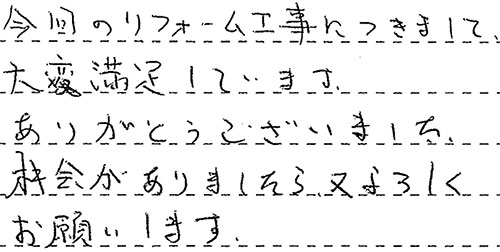 今回のリフォーム工事につきまして、
大変満足しています。
ありがとうございました。
機会がありましたら、又よろしく
お願いします。